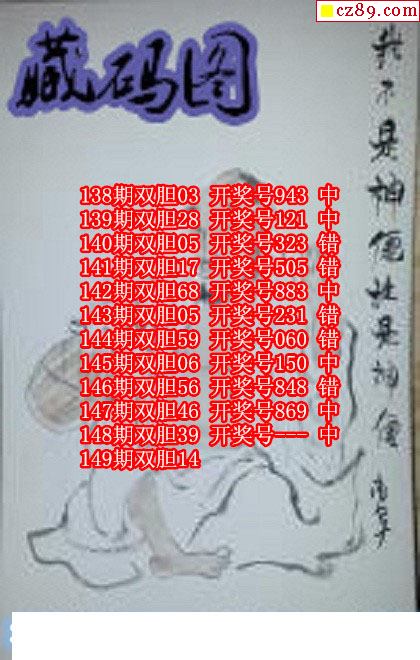 cz89.com
藏码图
138期双胆03 开奖号943 中
139期双胆28 开奖号121 中
140期双胆05 开奖号323 错
141期双胆17 开奖号505 错
142期双胆68 开奖号883 中
143期双胆05 开奖号231 错
144期双胆59 开奖号060 错
145期双胆06 开奖号150 中
146期双胆56 开奖号848 错
147期双胆46 开奖号869 中
148期双胆39 开奖号--- 中
149期双胆14
我不是神仙